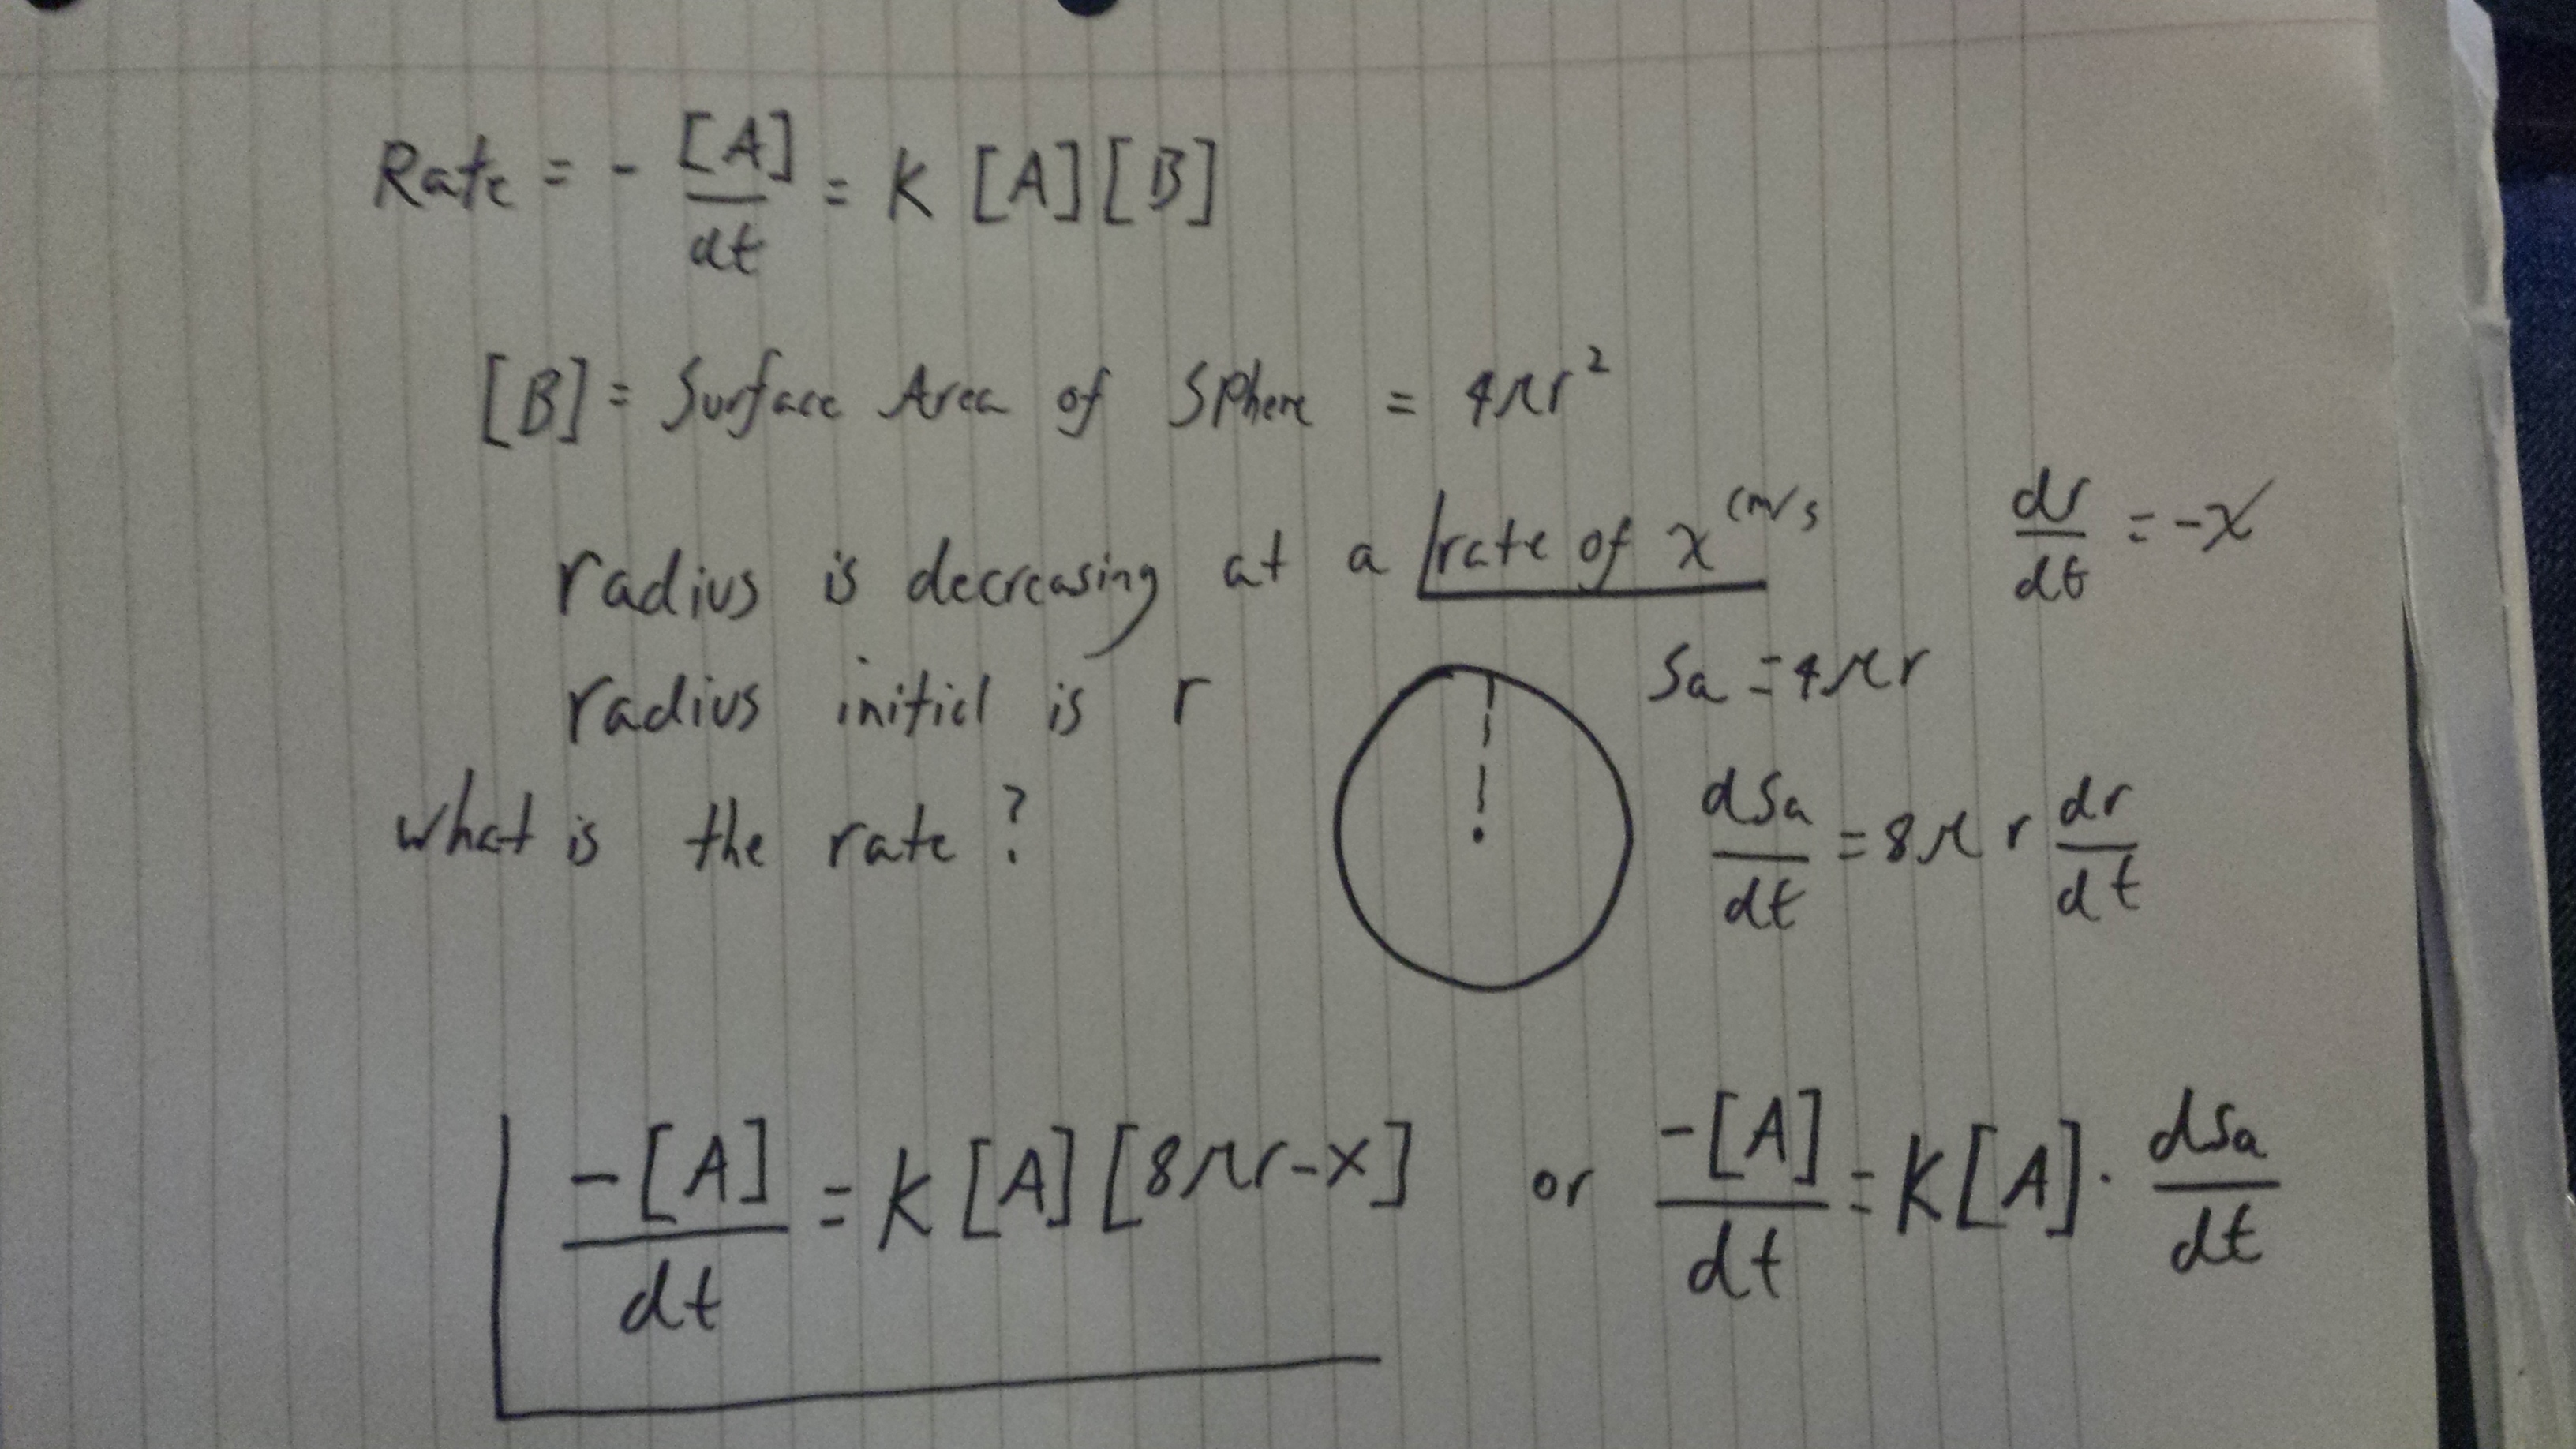 Rate = - [A]/dt = K [A][B]
[B] = Surface Area of Sphere = 4πr²
radius is decreasing at a rate of x cm/s
dr/dt = -x
radius initial is r
Sa = 4πr
what is the rate?
dSa/dt = 8π r dr/dt
-[A]/dt = K [A] [8πr-x] or -[A]/dt = K[A] · dSa/dt